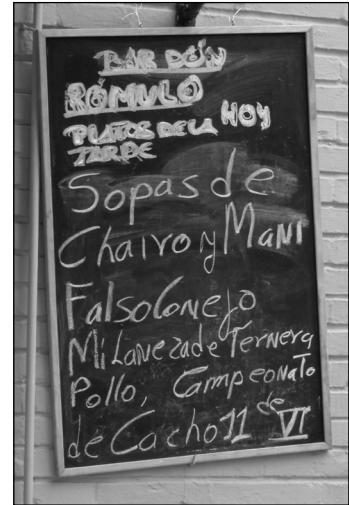 BAR DÓN
RÓMULO
PLATOS DE LA HOY
TARDE
Sopas de
Chairo y Mani
Falso Conejo
Milaneza de Ternera
Pollo, Campeonato
de Cacho 11 de VI